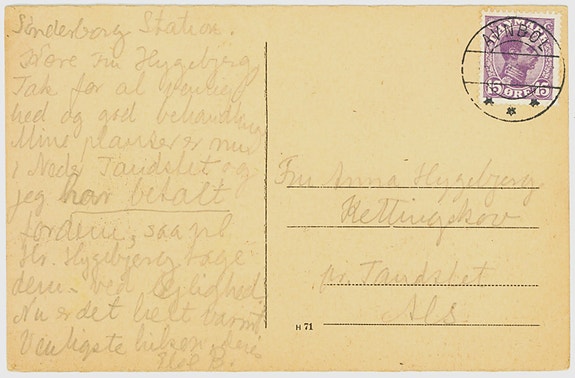 Sønderborg Station.
Kære Fru Hygebjerg
Tak for al venlig
hed og god behandling
Mine planser er nu
i Neder Tandslet og
jeg har betalt
for dem, saa pl
Hr. Hygebjerg tage
dem ved lejlighed.
Nu er det helt varmt
Venligste hilsen
DANMARK
15 ØRE 15
AVNBØL
Fru Anna Hygebjerg
Kettingskov
pr. Tandslet
Als
H 71